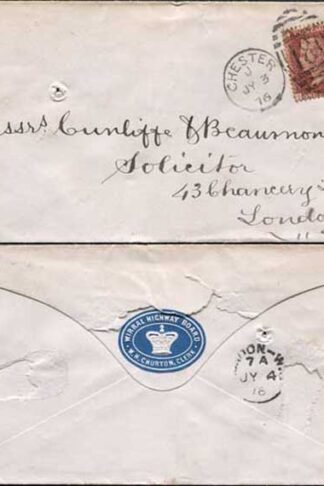 CHESTER
J
JY 3
76
essrs Cunliffe & Beaumon
Solicitor
43 Chancery
Londo
WIRRAL HIGHWAY BOARD
W.H. CHURTON, CLERK
DON-W
7 A
JY 4
76